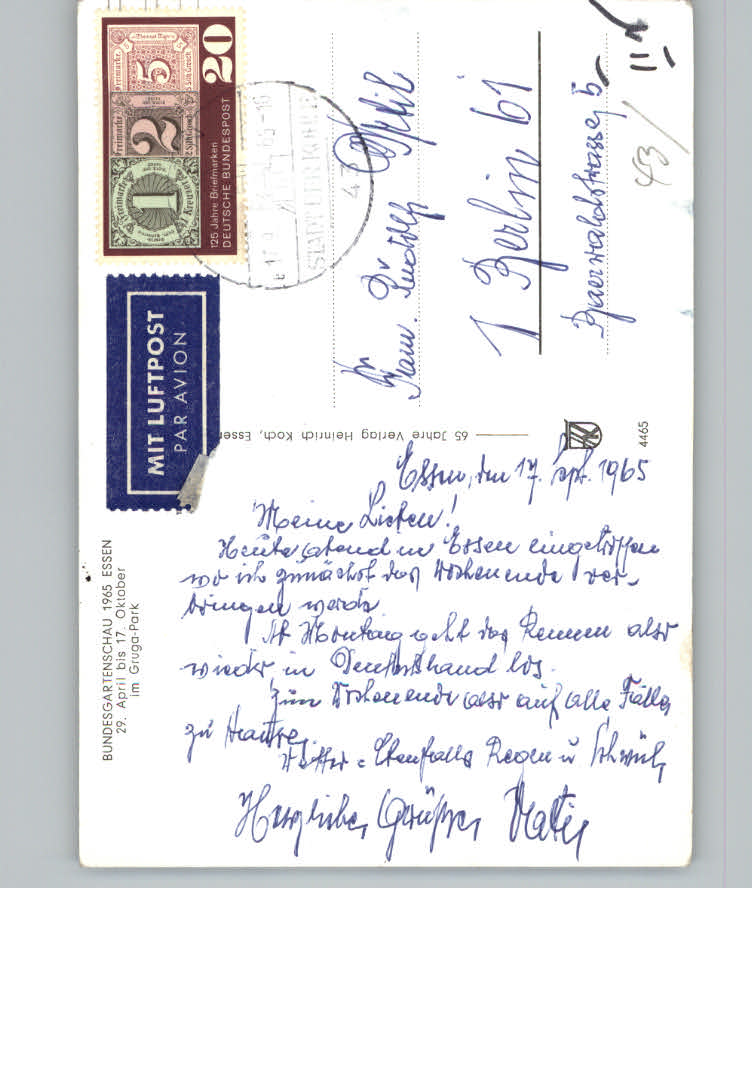 BUNDESGARTENSCHAU 1965 ESSEN
29. April bis 17. Oktober
im Gruga-Park
Essen, den 17. Sept. 1965
Meine Lieben!
Heute abend in Essen eingetroffen
wo ich zunächst das Wochenende ver-
bringen werde
Ab Montag geht das Rennen aber
wieder in Deutschland los.
Zum Wochenende aber auf alle Fälle
zu Hause.
Wetter = Ebenfalls Regen u Schwül,
Herzliche Grüsse Vati
MIT LUFTPOST
PAR AVION
65 Jahre Verlag Heinrich Koch, Essen
4465
20
125 Jahre Briefmarken
DEUTSCHE BUNDESPOST
Freimarke
5
Freimarke
2
Freimarke
1
Kreuzer
43
Fam. Rudolf
1 Berlin 61
Baerwaldstrasse 5
43/